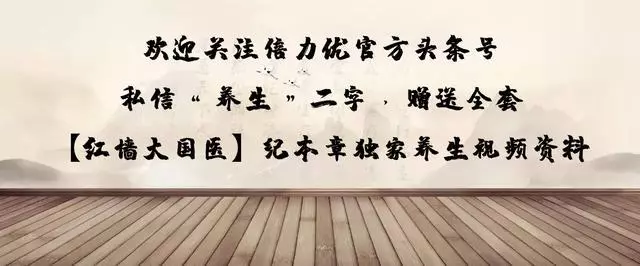 欢迎关注倍力优官方头条号
私信“养生”二字，赠送全套
【红墙大国医】纪本章独家养生视频资料